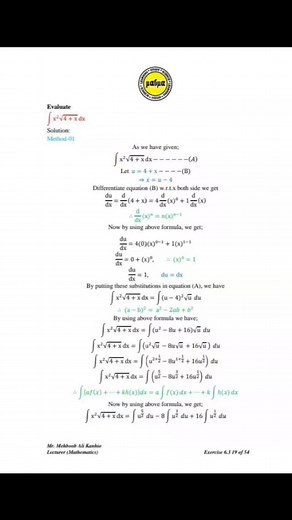 Evaluate
∫ x²√(4 + x) dx
Solution:
Method-01
As we have given;
∫ x²√(4 + x) dx − − − − − −(A)
Let u = 4 + x − − − −(B)
⇒ x = u − 4
Differentiate equation (B) w.r.t.x both side we get
du/dx = d/dx (4 + x) = 4 d/dx (x)⁰ + 1 d/dx (x)
∴ d/dx (x)ⁿ = n(x)ⁿ⁻¹
Now by using above formula, we get;
du/dx = 4(0)(x)⁰⁻¹ + 1(x)¹⁻¹
du/dx = 0 + (x)⁰, ∴ (x)⁰ = 1
du/dx = 1, du = dx
By putting these substitutions in equation (A), we have
∫ x²√(4 + x) dx = ∫ (u − 4)²√u du
∴ (a − b)² = a² − 2ab + b²
By using above formula we have;
∫ x²√(4 + x) dx = ∫ (u² − 8u + 16)√u du
∫ x²√(4 + x) dx = ∫ (u²√u − 8u√u + 16√u) du
∫ x²√(4 + x) dx = ∫ (u^(2+1/2) − 8u^(1+1/2) + 16u^(1/2)) du
∫ x²√(4 + x) dx = ∫ (u^(5/2) − 8u^(3/2) + 16u^(1/2)) du
∴ ∫ [af(x) + ⋯ + kh(x)]dx = a ∫ f(x) dx + ⋯ + k ∫ h(x) dx
Now by using above formula, we get;
∫ x²√(4 + x) dx = ∫ u^(5/2) du − 8 ∫ u^(3/2) du + 16 ∫ u^(1/2) du
Mr. Mehboob Ali Kanhio
Lecturer (Mathematics) Exercise 6.3 19 of 54